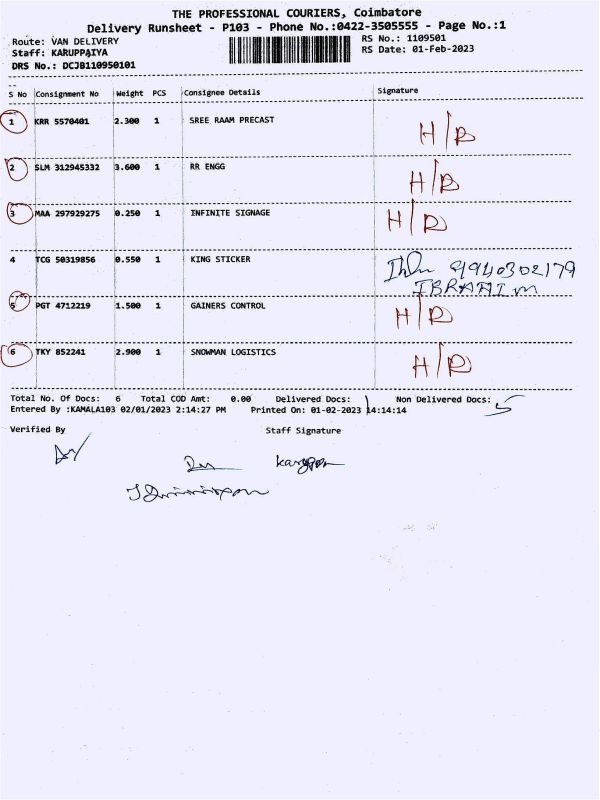 THE PROFESSIONAL COURIERS, Coimbatore
Delivery Runsheet - P103 - Phone No.:0422-3505555 - Page No.:1
Route: VAN DELIVERY RS No.: 1109501
Staff: KARUPPAIYA RS Date: 01-Feb-2023
DRS No.: DCJB110950101
S No Consignment No Weight PCS Consignee Details Signature
1 KRR 5570401 2.300 1 SREE RAAM PRECAST H/R
2 SLM 312945332 3.600 1 RR ENGG H/R
3 MAA 297929275 0.250 1 INFINITE SIGNAGE H/R
4 TCG 50319856 0.550 1 KING STICKER 9940302179
IBRAHIM
5 PGT 4712219 1.500 1 GAINERS CONTROL H/R
6 TKY 852241 2.900 1 SNOWMAN LOGISTICS H/R
Total No. Of Docs: 6 Total COD Amt: 0.00 Delivered Docs: 1 Non Delivered Docs: 5
Entered By :KAMALA103 02/01/2023 2:14:27 PM Printed On: 01-02-2023 14:14:14
Verified By Staff Signature